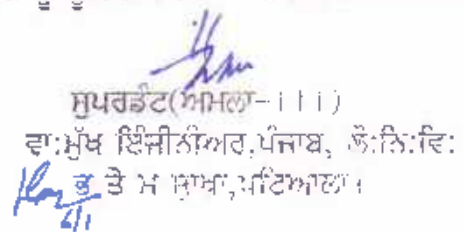 ਸੁਪਰਡੰਟ(ਅਮਲਾ-iii)
ਵਾ:ਮੁੱਖ ਇੰਜੀਨੀਅਰ,ਪੰਜਾਬ, ਲੋ:ਨਿ:ਵਿ:
ਭ ਤੇ ਮ ਸ਼ਾਖਾ,ਪਟਿਆਲਾ।